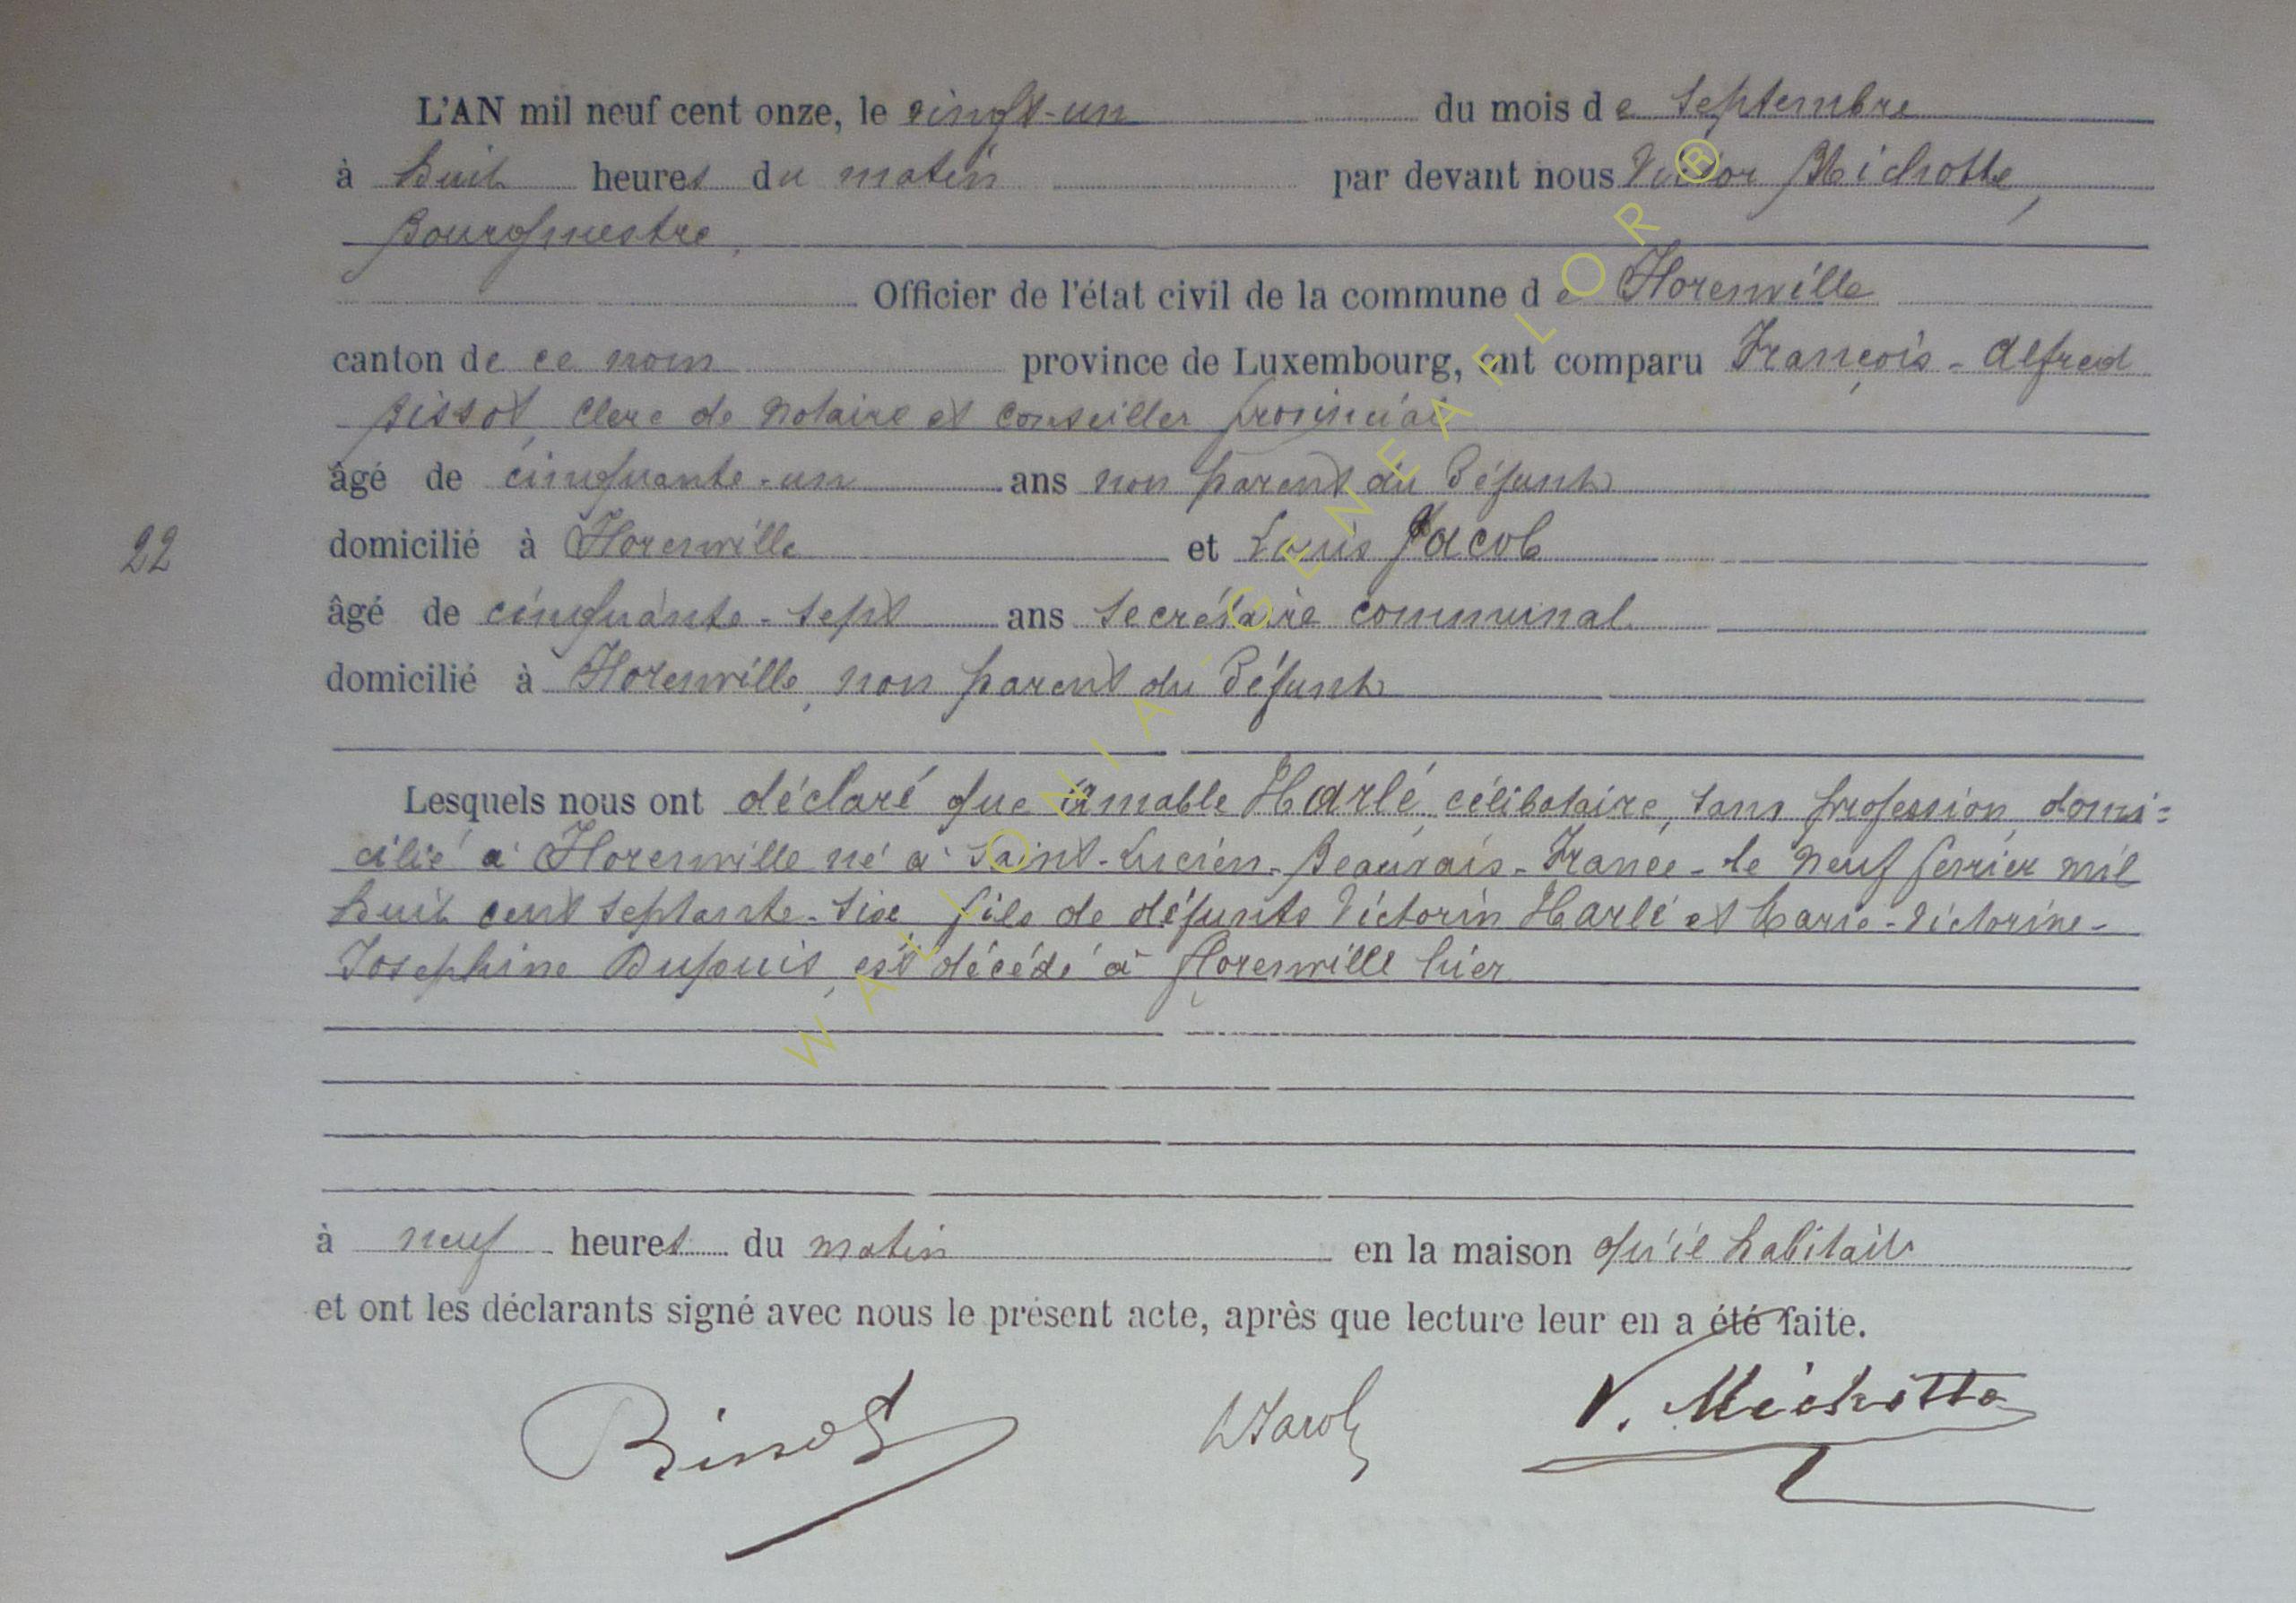 L'AN mil neuf cent onze, le vingt-un du mois de Septembre
à huit heures du matin par devant nous Victor Michotte,
Bourgmestre,
Officier de l'état civil de la commune de Florenville
canton de ce nom province de Luxembourg, ont comparu François-Alfred
Bissot, clerc de Notaire et Conseiller provincial
âgé de cinquante-un ans non parent du défunt
22
domicilié à Florenville et Louis Jacob
âgé de cinquante-sept ans Secrétaire communal
domicilié à Florenville, non parent du défunt
Lesquels nous ont déclaré que Amable Harlé, célibataire, sans profession, domi=
cilié à Florenville né à Saint-Lucien-Beauvais-France-le Neuf février mil
huit cent septante-six fils de défunts Victorin Harlé et Marie-Victorine-
Josephine Dupuis, est décédé à Florenville hier
à neuf heures du matin en la maison qu'il habitait
et ont les déclarants signé avec nous le présent acte, après que lecture leur en a été faite.
Bissot LJacob V. Michotte
WALLONIA-GENEAFLOR ®